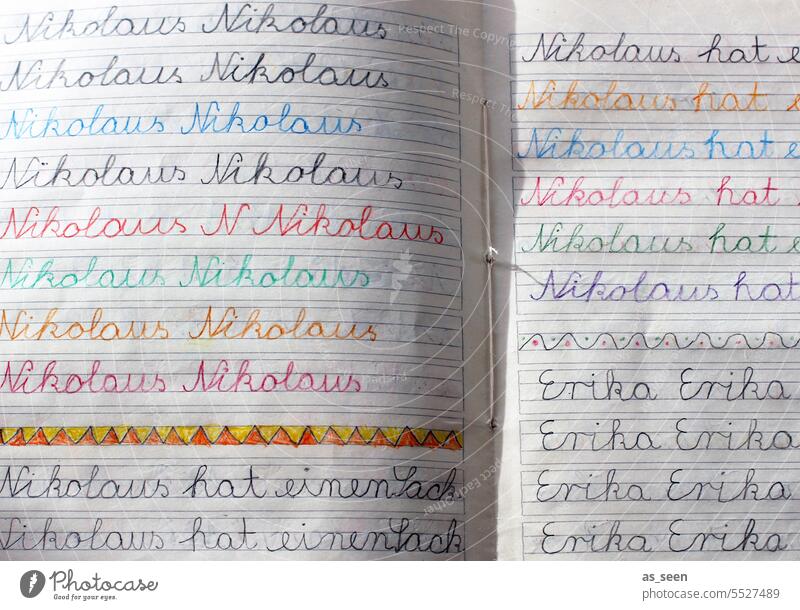 Nikolaus Nikolaus
Nikolaus Nikolaus
Nikolaus Nikolaus
Nikolaus Nikolaus
Nikolaus N Nikolaus
Nikolaus Nikolaus
Nikolaus Nikolaus
Nikolaus Nikolaus
Nikolaus hat einen Sack
Nikolaus hat einen Sack
Nikolaus hat e
Nikolaus hat e
Nikolaus hat e
Nikolaus hat
Nikolaus hat e
Nikolaus hat
Erika Erika
Erika Erika
Erika Erika
Erika Erika
PHOTOCASE
Good for your eyes.
as_seen
© 5527489